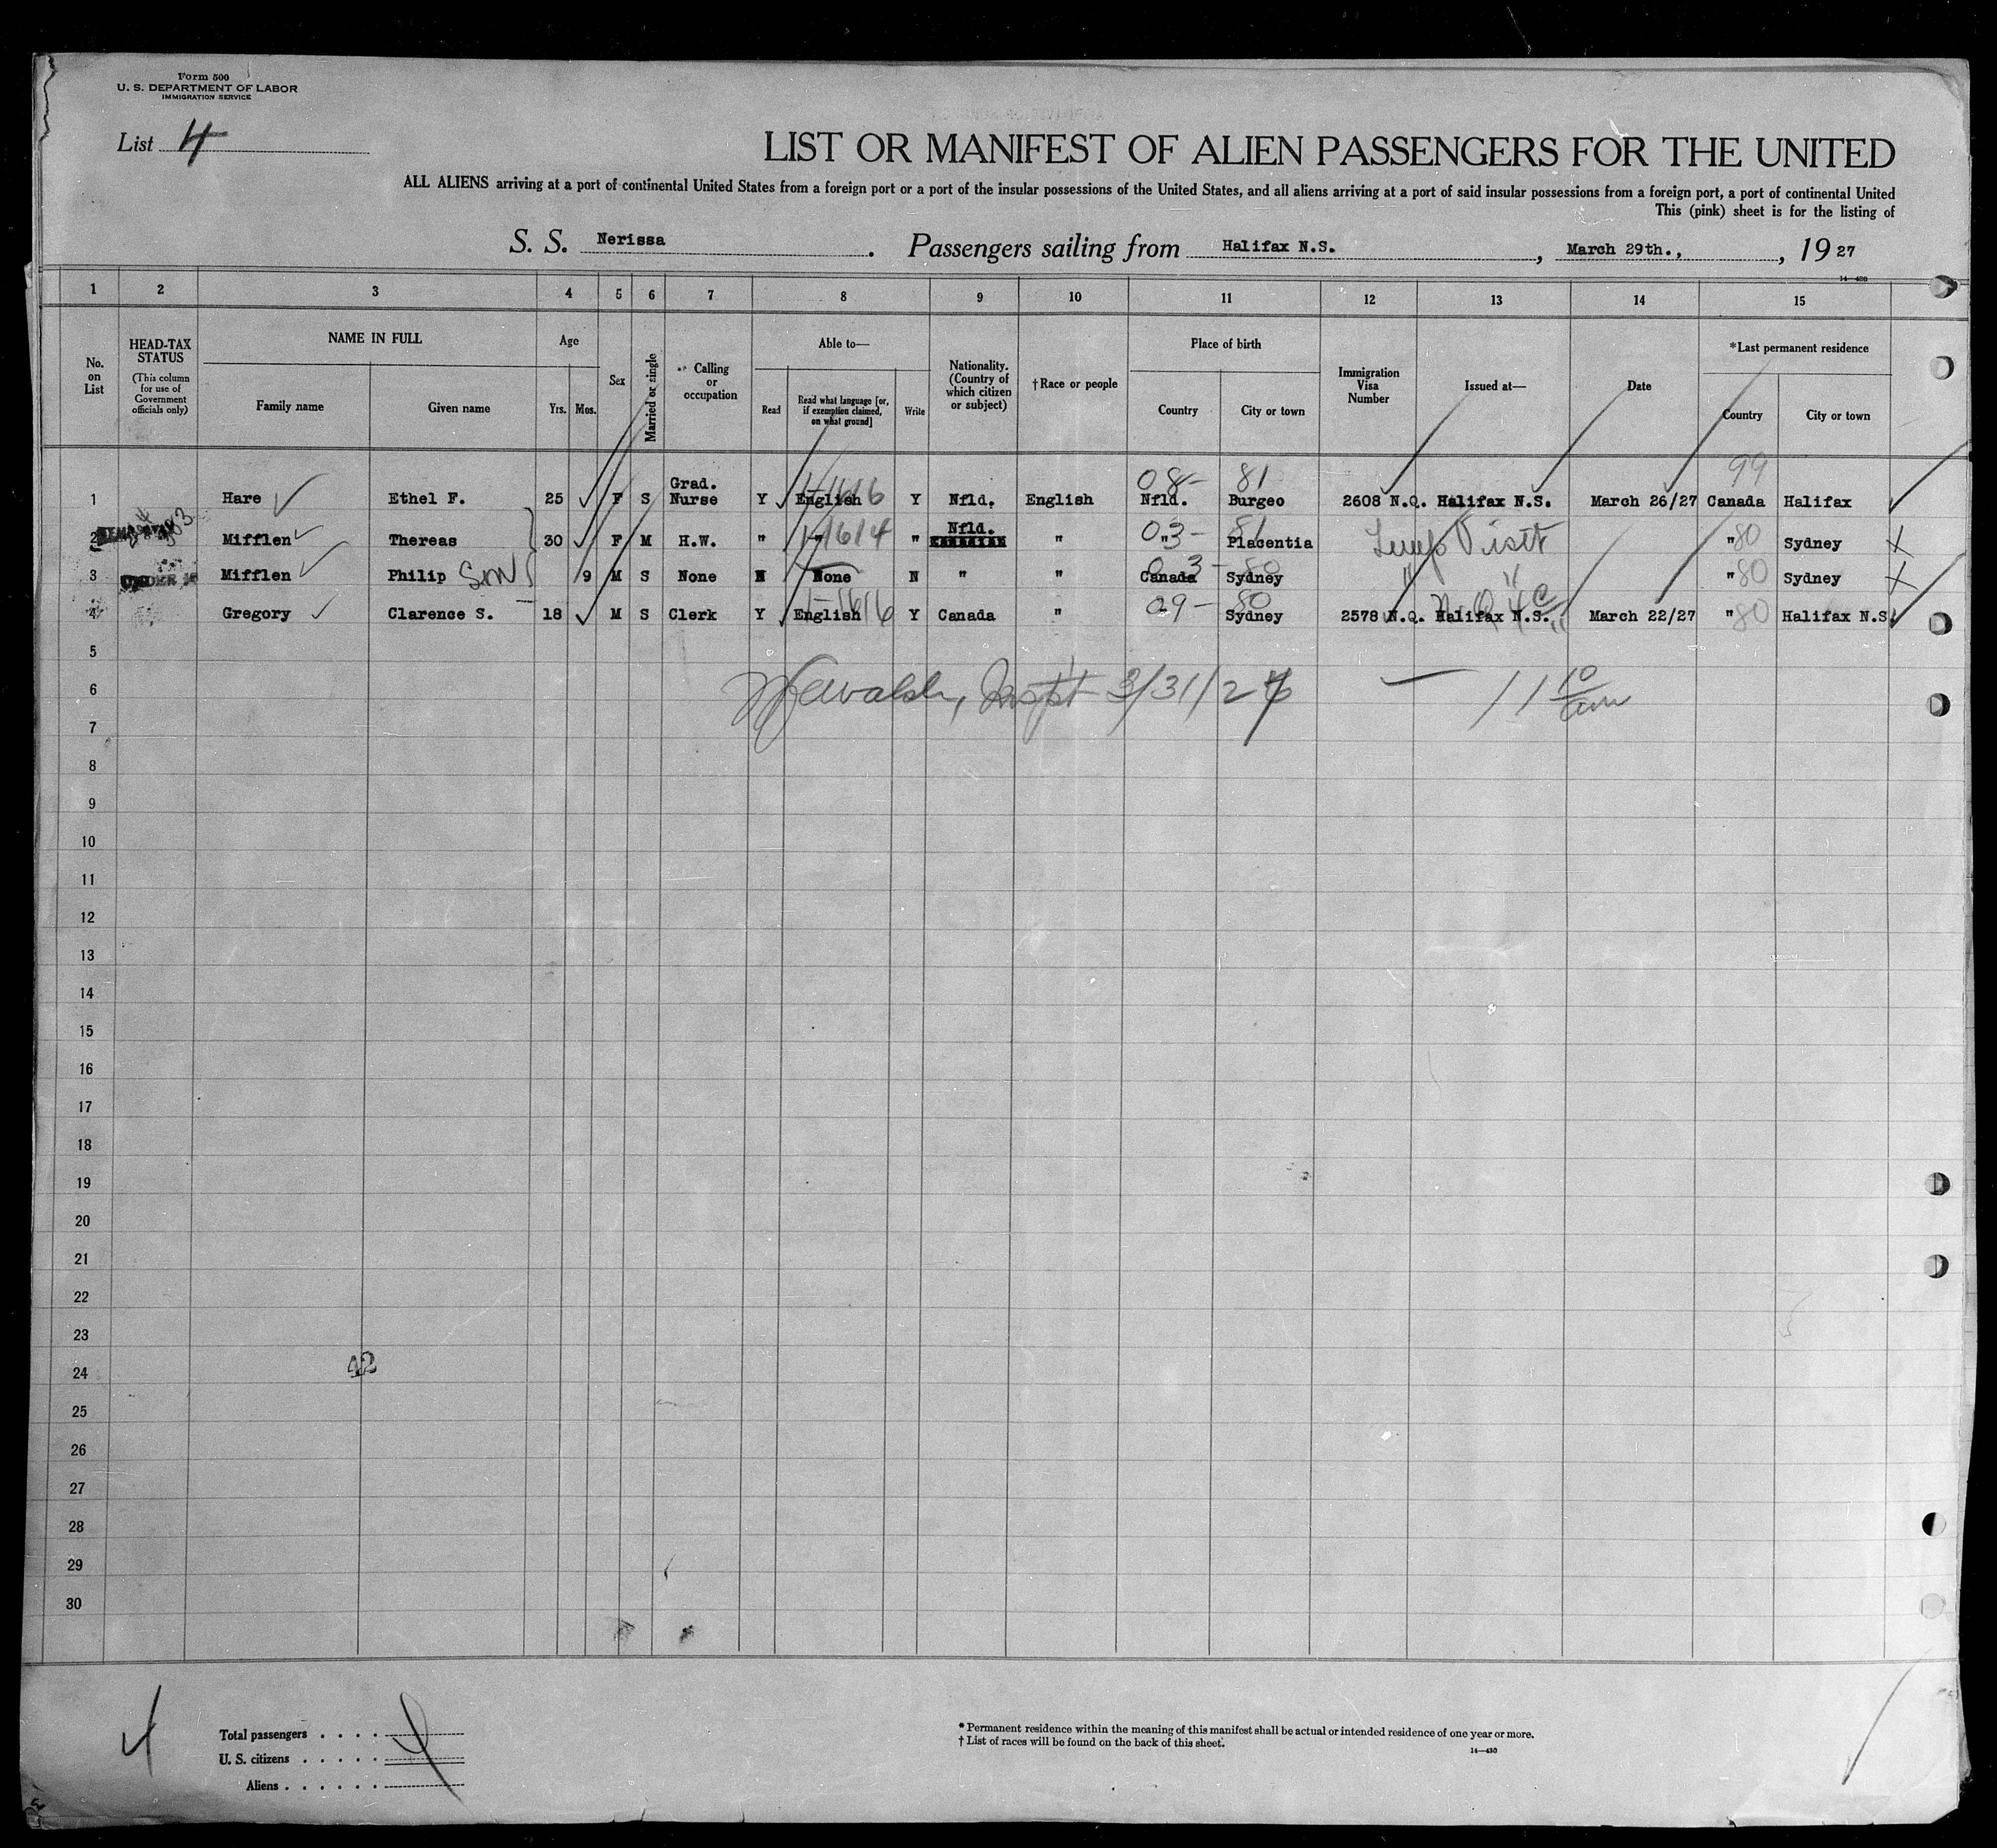 Form 500
U. S. DEPARTMENT OF LABOR
IMMIGRATION SERVICE
List 4
LIST OR MANIFEST OF ALIEN PASSENGERS FOR THE UNITED
ALL ALIENS arriving at a port of continental United States from a foreign port or a port of the insular possessions of the United States, and all aliens arriving at a port of said insular possessions from a foreign port, a port of continental United
This (pink) sheet is for the listing of
S. S. Nerissa. Passengers sailing from Halifax N.S., March 29th., , 1927
14—430
1 2 3 4 5 6 7 8 9 10 11 12 13 14 15
No. on List
HEAD-TAX STATUS
(This column for use of Government officials only)
NAME IN FULL
Family name Given name
Age
Yrs. Mos.
Sex
Married or single
Calling or occupation
Able to—
Read
Read what language [or, if exemption claimed, on what ground]
Write
Nationality. (Country of which citizen or subject)
†Race or people
Place of birth
Country City or town
Immigration Visa Number
Issued at—
Date
*Last permanent residence
Country City or town
08- 81 99
1 Hare Ethel F. 25 F S Grad. Nurse Y English Y Nfld. English Nfld. Burgeo 2608 N.Q. Halifax N.S. March 26/27 Canada Halifax
2 Mifflen Thereas 30 F M H.W. " " " Nfld. " " 03- 81 Placentia Temp Visit " 80 Sydney
3 Mifflen Philip Son 9 M S None N None N " " Canada Sydney " " " 80 Sydney
4 Gregory Clarence S. 18 M S Clerk Y English Y Canada " 09- 80 Sydney 2578 N.Q. Halifax N.S. March 22/27 " 80 Halifax N.S.
5
6 Insp't 3/31/27 — 11 10 am
7
8
9
10
11
12
13
14
15
16
17
18
19
20
21
22
23
24 42
25
26
27
28
29
30
4
Total passengers . . . . 4
U. S. citizens . . . . .
Aliens . . . . . .
* Permanent residence within the meaning of this manifest shall be actual or intended residence of one year or more.
† List of races will be found on the back of this sheet.
14—430